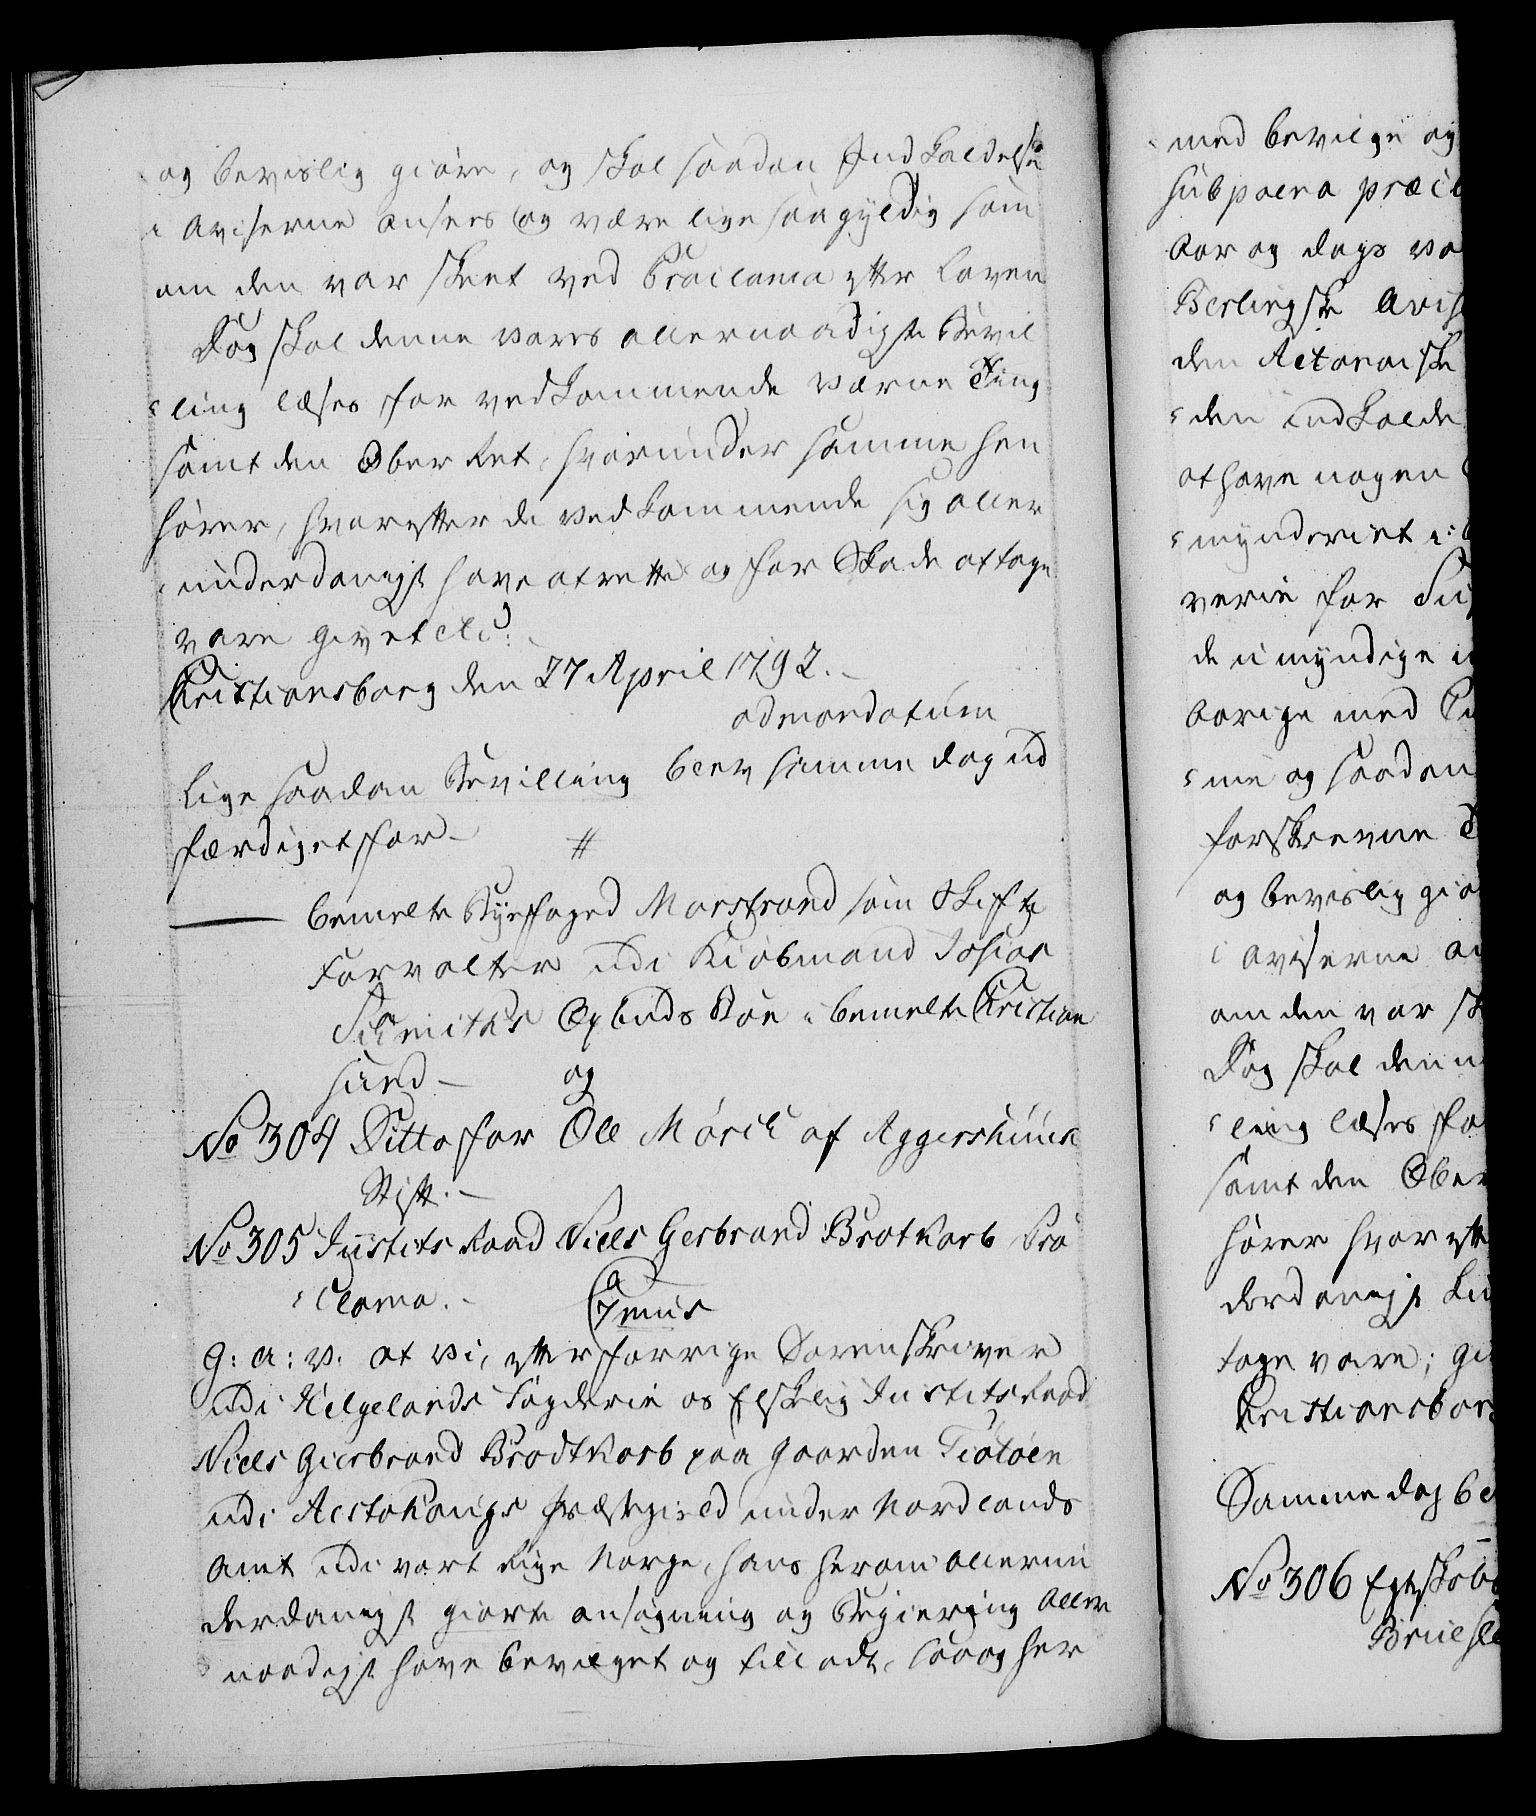 og bevislig giøre, og skal saadan Indkaldelse
i Aviserne ansees og være lige saa gyldig som
om den var skeet ved Proclama efter Loven
Dog skal denne vores allernaadigste Bevil
ling læses for vedkommende værne Ting
samt den Ober Ret, hvorunder samme hen
hører, hvorefter de vedkommende sig aller
underdanigst have at rette og for Skade at tage
vare givet etc:
Christiansborg den 27 April 1792.
ad mandatum
Lige saadan Bevilling blev samme dag ud
færdiget for
bemelte Byefoged Marstrand som Skifte
Forvalter udi Kiøbmand Josias
Schmith's Opbuds Boe i bemelte Christian
sund
og
No 304 Ditto for Ole Mörch af Aggershuus
Stift.
No 305 Justits Raad Niels Gerbrand Brotkorb Pro
clama.
G: A: V. at vi, efter forrige Sorenskriver
udi Helgelands Fogderie os Elskelig Justitsraad
Niels Gierbrand Brodtkorb paa Gaarden Tiøtøen
udi Alstahougs Præstegield under Nordlands
Amt udi vort Rige Norge, hans herom allerun
derdanigst giorte ansøgning og Begiering Aller
naadigst have bevilget og tilladt, saa og her
med bevilge og
sub poena præcl
Aar og dags va
Berlingske Avis
den
den indkalde
at have nogen
mynderiet i:
verie for
de umyndige
Aarige med
me og saadan
forskrevne
og bevislig giø
i Aviserne an
om den var sk
Dog skal denn
ling læses fo
samt den Ober
hører hvorefte
derdanigst
tage vare; gi
Christiansbor
Samme dag bl
No 306 Egteskab